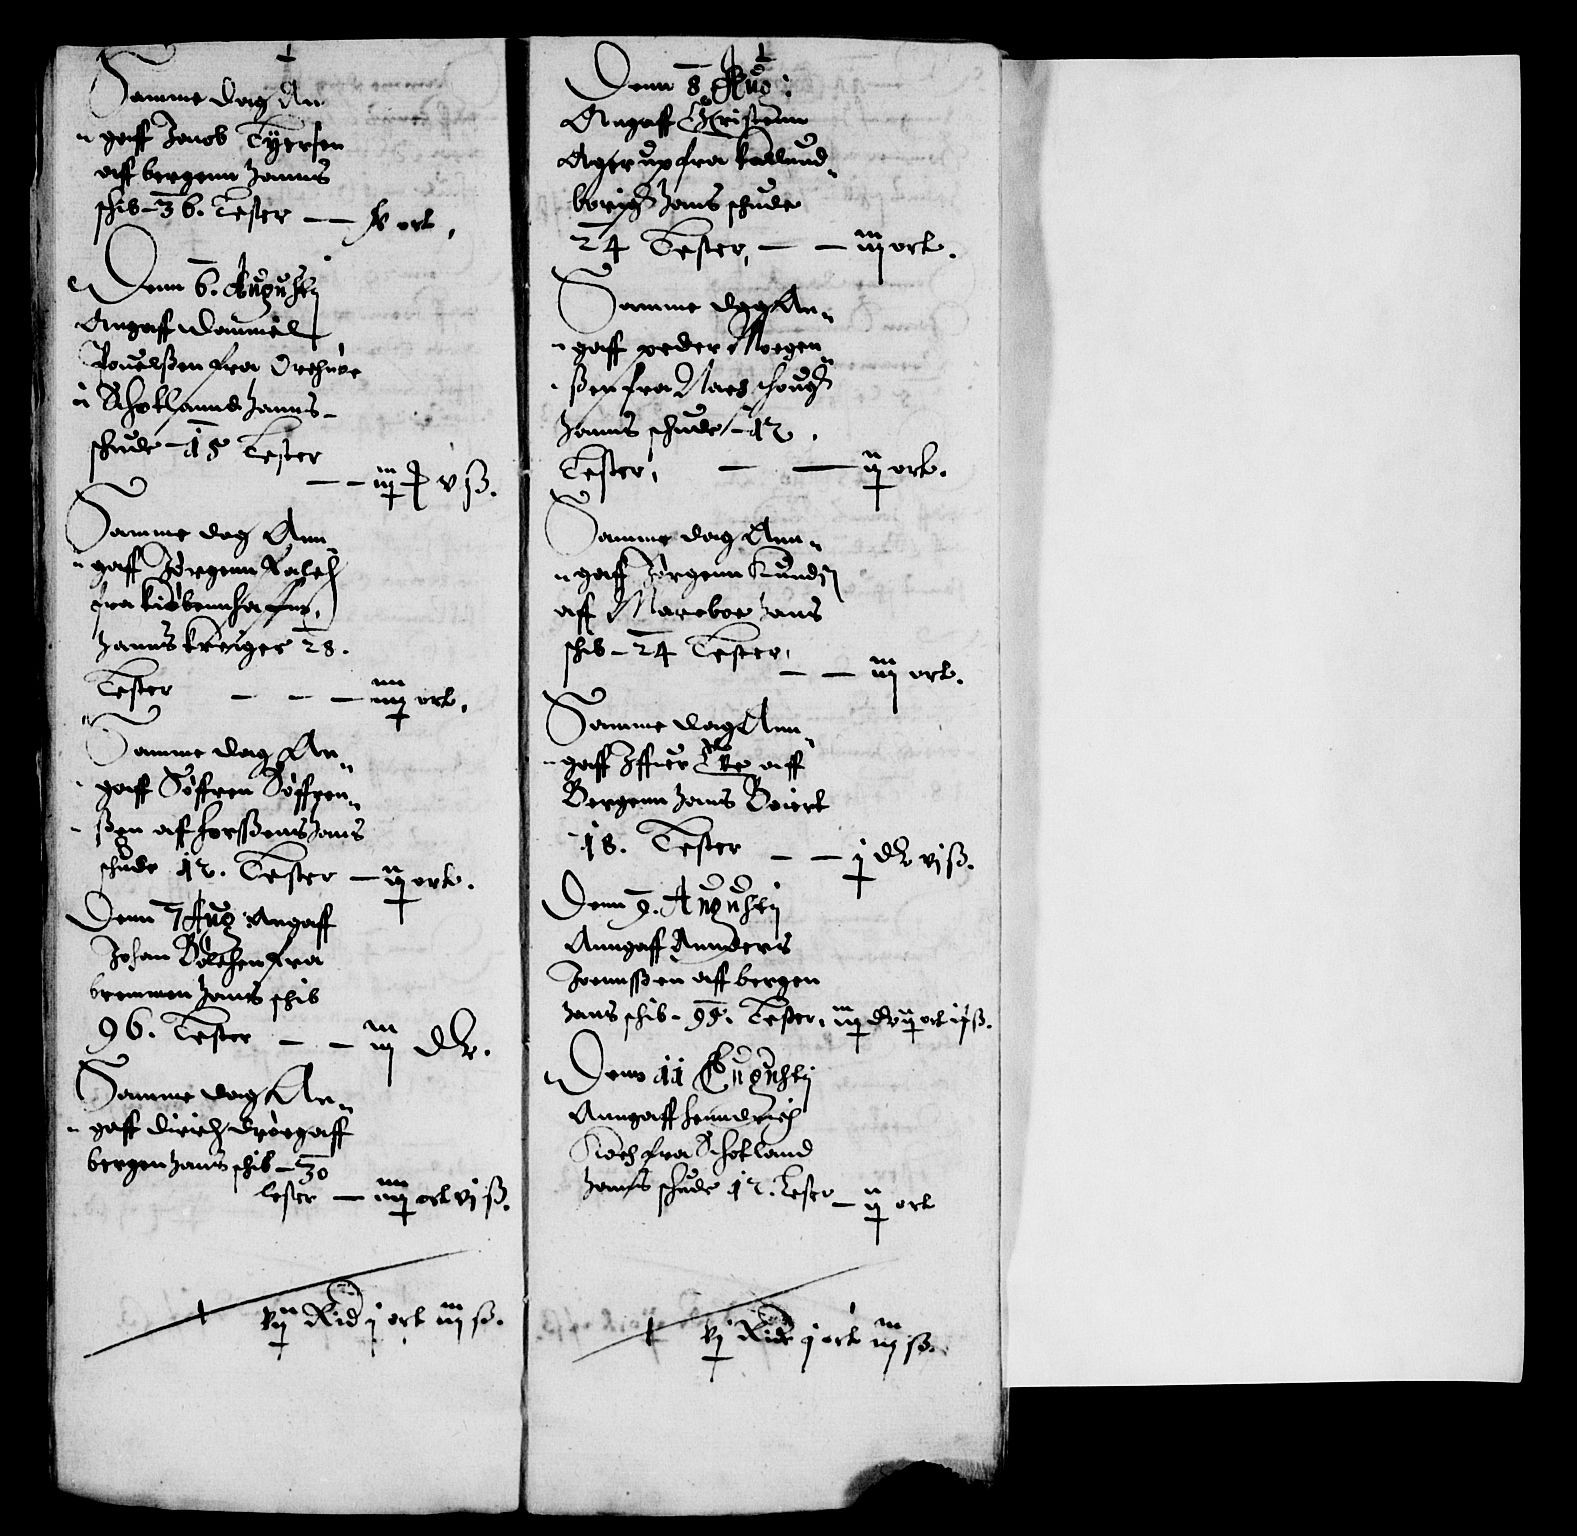 Samme dag An
gaff Jacob Tyersen
aff bergenn hanns
schib - 36. Lester — — ort.
Denn 6. Augusti
Angaff Dannıel
Pouelßen fra
i Schotlannd hanns
schude - 15 Lester
— — iij v ß.
Samme dag Ann
gaff Jørgenn Falch
fra kiøbennhaffn,
hanns kreiger 28.
Lester — — — iiij ort.
Samme dag An
gaff Søffren Søffren
ßen aff horßens hans
schude 12. Lester — ij ort.
Denn 7 Aug Angaff
Johan Bølchen fra
bremmen hans schib
96. Lester — — iij Dr.
Samme dag An
gaff dirich aff
bergen hans schib - 30
lester — iiij ort vj ß.
vij Rid j ort iij ß.
Denn 8 Aug:
Angaff Christenn
Agerup fra kallund
borrig hans schude
24 Lester, — — iij ort.
Samme dag An
gaff peder Mogen
ßen fra Nachschoug
hanns schude - 12.
Lester, — — ij ort.
Samme dag Ann
gaff Jørgenn
aff Mareboe hans
schib - 24 Lester,
— — iij ort.
Samme dag Ann
gaff Iffuer aff
Bergenn hans Boiert
18. Lester — — j Dr vj ß.
Denn 9. Augusti
Anngaff Annders
Joennßen aff bergen
hans schib - 95. Lester, iij dr ij ort ij ß.
Denn 11 Augusti
Anngaff henndrich
Koch fra Schotland
hans schude 12. Lester — ij ort
vj Rid j ort iij ß.